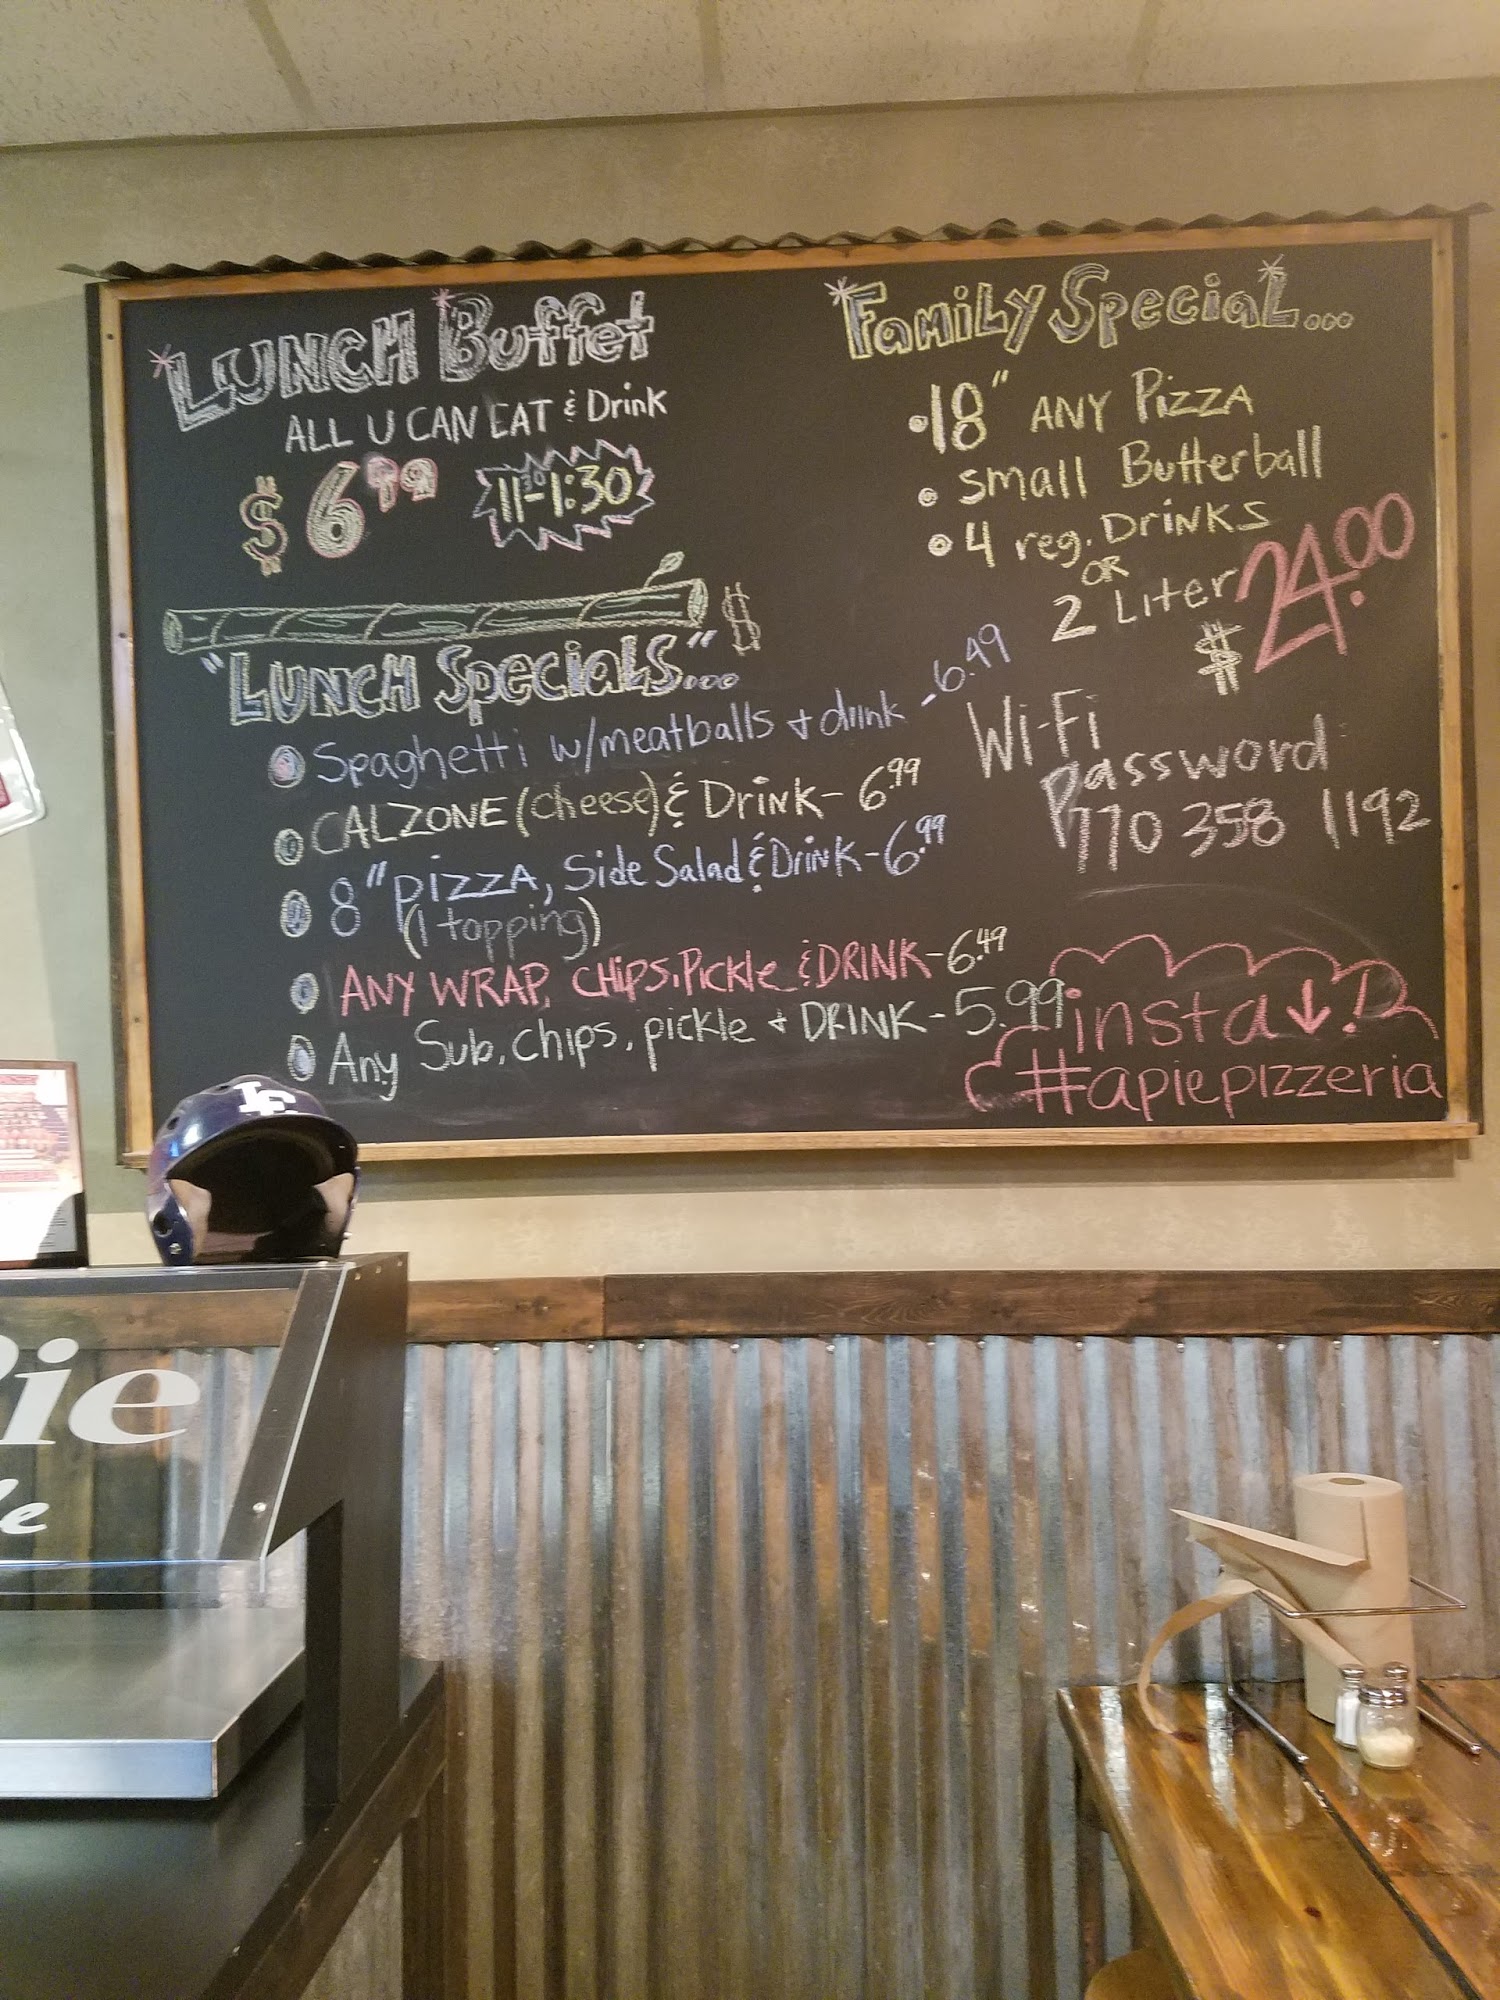 *LUNCH *Buffet
ALL U CAN EAT & Drink
$6.99
11:30-1:30
"LUNCH SpeciaLS"...
$
Spaghetti w/meatballs + drink - 6.49
CALZONE (cheese) & Drink - 6.99
8" pizza, Side Salad & Drink - 6.99
(1 topping)
ANY WRAP, CHiPS, Pickle & DRINK - 6.49
Any Sub, chips, pickle + DRINK - 5.99
*FamiLy SpeciaL...
• 18" ANY Pizza
• small Butterball
• 4 reg. Drinks
OR
2 Liter
$24.00
Wi-Fi
Password
770 358 1192
insta↓!
#apiepizzeria
Pie